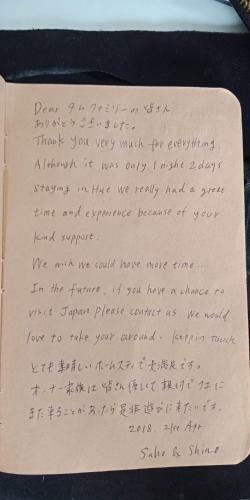 Dear タムファミリーの皆さん
ありがとうございました。
Thank you very much for everything.
Although it was only 1 night 2 days
staying in Hue we really had a great
time and experience because of your
kind support.
We wish we could have more time...
In the future, if you have a chance to
visit Japan please contact us. We would
love to take your around. Keep in touch
とても素晴しいホームステイで大満足です。
オーナー家族は皆さん優しくて親切でフエに
また来ることがあったら是非遊びに来たいです。
2018. 21st Apr
Saho & Shino